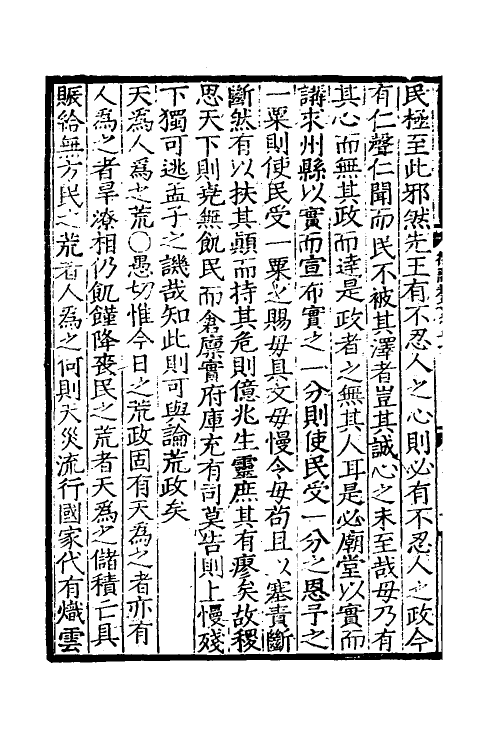 民極至此邪然先王有不忍人之心則必有不忍人之政今
有仁聲仁聞而民不被其澤者豈其誠心之未至哉毋乃有
其心而無其政而達是政者之無其人耳是必廟堂以實而
講求州縣以實而宣布實之一分則使民受一分之恩予之
一粟則使民受一粟之賜毋具文毋慢令毋苟且以塞責斷
斷然有以扶其顛而持其危則億兆生靈庶其有瘳矣故稷
思天下則堯無飢民而倉廩實府庫充有司莫告則上慢殘
下獨可逃孟子之譏哉知此則可與論荒政矣
天為人爲之荒〇愚切惟今日之荒政固有天為之者亦有
人為之者旱潦相仍飢饉降喪民之荒者天為之儲積亡具
賑給無方民之荒者人為之何則天災流行國家代有熾雲